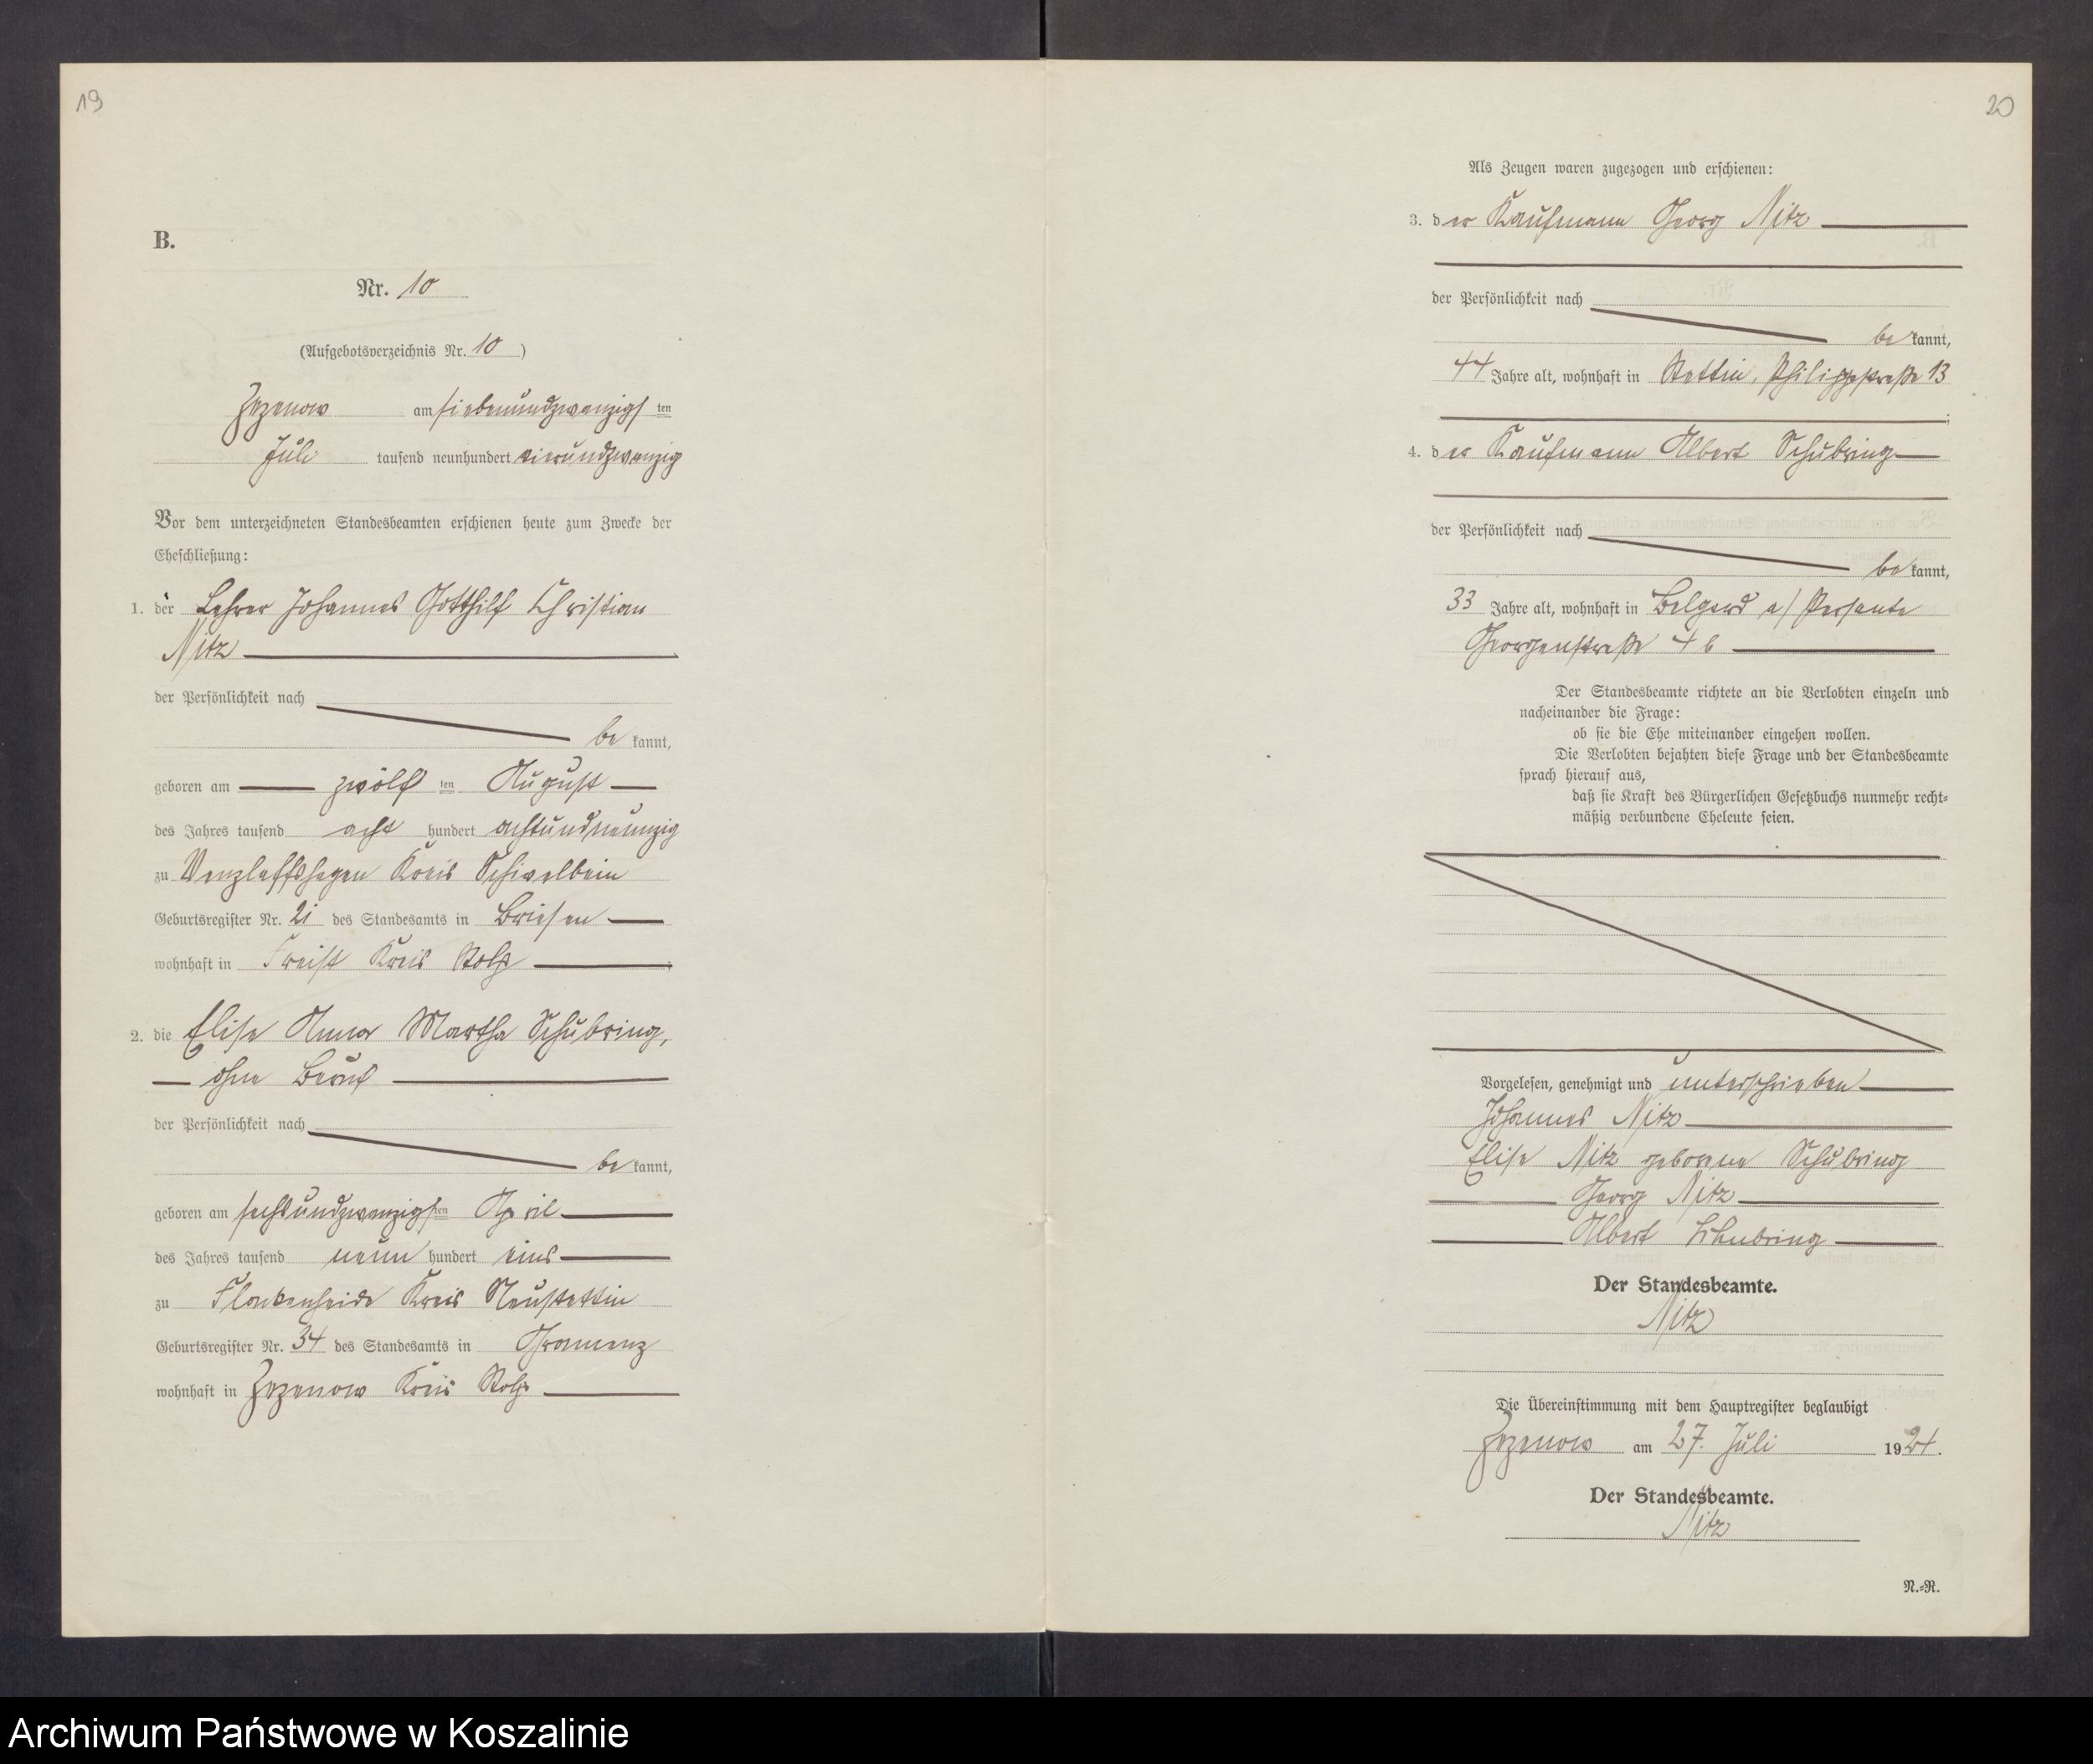 19
B.
Nr. 10
(Aufgebotsverzeichnis Nr. 10)
Zezenow am siebenundzwanzigsten
Juli tausend neunhundert vierundzwanzig
Vor dem unterzeichneten Standesbeamten erschienen heute zum Zwecke der
Eheschließung:
1. der Lehrer Johannes Gotthilf Christian
Nitz
der Persönlichkeit nach
bekannt,
geboren am zwölften August
des Jahres tausend acht hundert achtundneunzig
zu Venzlaffshagen Kreis Schivelbein
Geburtsregister Nr. 21 des Standesamts in Briesen
wohnhaft in Freist Kreis Stolp
2. die Elise Anna Martha Schubring,
ohne Beruf
der Persönlichkeit nach
bekannt,
geboren am sechsundzwanzigsten April
des Jahres tausend neun hundert eins
zu Flackenheide Kreis Neustettin
Geburtsregister Nr. 34 des Standesamts in Gramenz
wohnhaft in Zezenow Kreis Stolp
20
Als Zeugen waren zugezogen und erschienen:
3. der Kaufmann Georg Nitz
der Persönlichkeit nach
bekannt,
44 Jahre alt, wohnhaft in Stettin, Philippstraße 13
;
4. der Kaufmann Albert Schubring
der Persönlichkeit nach
bekannt,
33 Jahre alt, wohnhaft in Belgard a/Persante
Georgenstraße 4 b
Der Standesbeamte richtete an die Verlobten einzeln und
nacheinander die Frage:
ob sie die Ehe miteinander eingehen wollen.
Die Verlobten bejahten diese Frage und der Standesbeamte
sprach hierauf aus,
daß sie Kraft des Bürgerlichen Gesetzbuchs nunmehr recht-
mäßig verbundene Eheleute seien.
Vorgelesen, genehmigt und unterschrieben
Johannes Nitz
Elise Nitz geborene Schubring
Georg Nitz
Albert Schubring
Der Standesbeamte.
Nitz
Die Übereinstimmung mit dem Hauptregister beglaubigt
Zezenow am 27. Juli 1924.
Der Standesbeamte.
Nitz
N.-R.
Archiwum Państwowe w Koszalinie